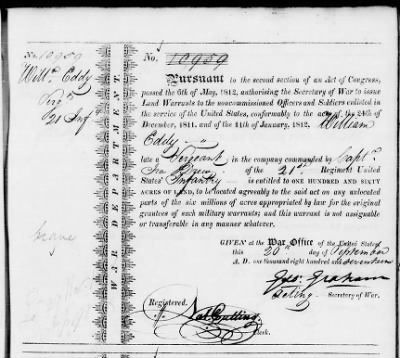 No. 10959
Willm. Eddy
Sergt
21 Inf
WAR DEPARTMENT.
No. 10959
Pursuant to the second section of an Act of Congress,
passed the 6th of May, 1812, authorising the Secretary of War to issue
Land Warrants to the noncommissioned Officers and Soldiers enlisted in
the service of the United States, conformably to the acts of the 24th of
December, 1811, and of the 11th of January, 1812, William
Eddy
late a Sergeant in the company commanded by Captn.
Ira of the 21st Regiment United
States' Infantry is entitled to ONE HUNDRED AND SIXTY
ACRES OF LAND, to be located agreeably to the said act on any unlocated
parts of the six millions of acres appropriated by law for the original
grantees of such military warrants; and this warrant is not assignable
or transferable in any manner whatever.
GIVEN at the War Office of the United States
this 20th day of September
A. D. one thousand eight hundred and Seventeen
Geo: Graham
Acting Secretary of War.
Registered.
Nat Cutting
Clerk.